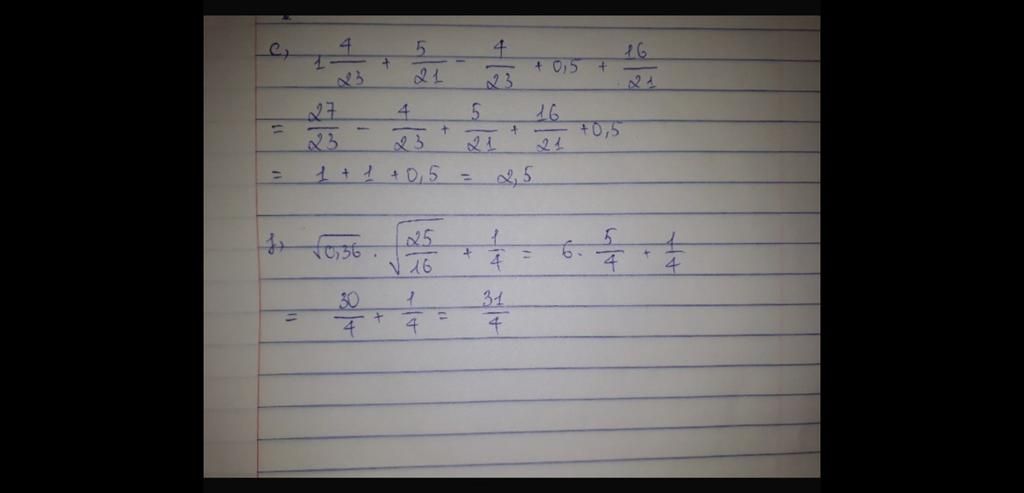 c, 1 4/23 + 5/21 - 4/23 + 0,5 + 16/21
= 27/23 - 4/23 + 5/21 + 16/21 + 0,5
= 1 + 1 + 0,5 = 2,5
f, √0,36 . √25/16 + 1/4 = 6. 5/4 + 1/4
= 30/4 + 1/4 = 31/4